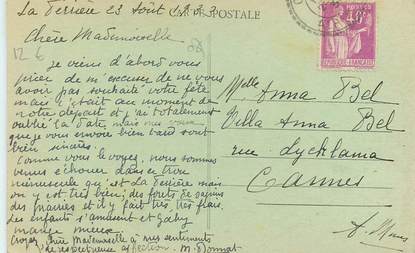 La Ferrière 23 Août
CARTE POSTALE
Chère Mademoiselle
12 6
je viens d'abord vous
prier de m'excuser de ne vous
avoir pas souhaité votre fête
mais c'était au moment de
notre départ et j'ai totalement
oublié la date mais
que je vous envoie bien tard sont
bien sincères.
Comme vous le voyez, nous sommes
venus s'échouer dans ce trou
minuscule qu'est La Ferrière mais
on y est très bien; des forêts de sapins
des prairies et il y fait très, très frais.
les enfants s'amusent et Gaby
mange mieux
Croyez, chère Mademoiselle à mes sentiments
de respectueuse affection. M.
Melle Anna Bel
Villa Anna Bel
rue Lycklama
Cannes
A. Mmes